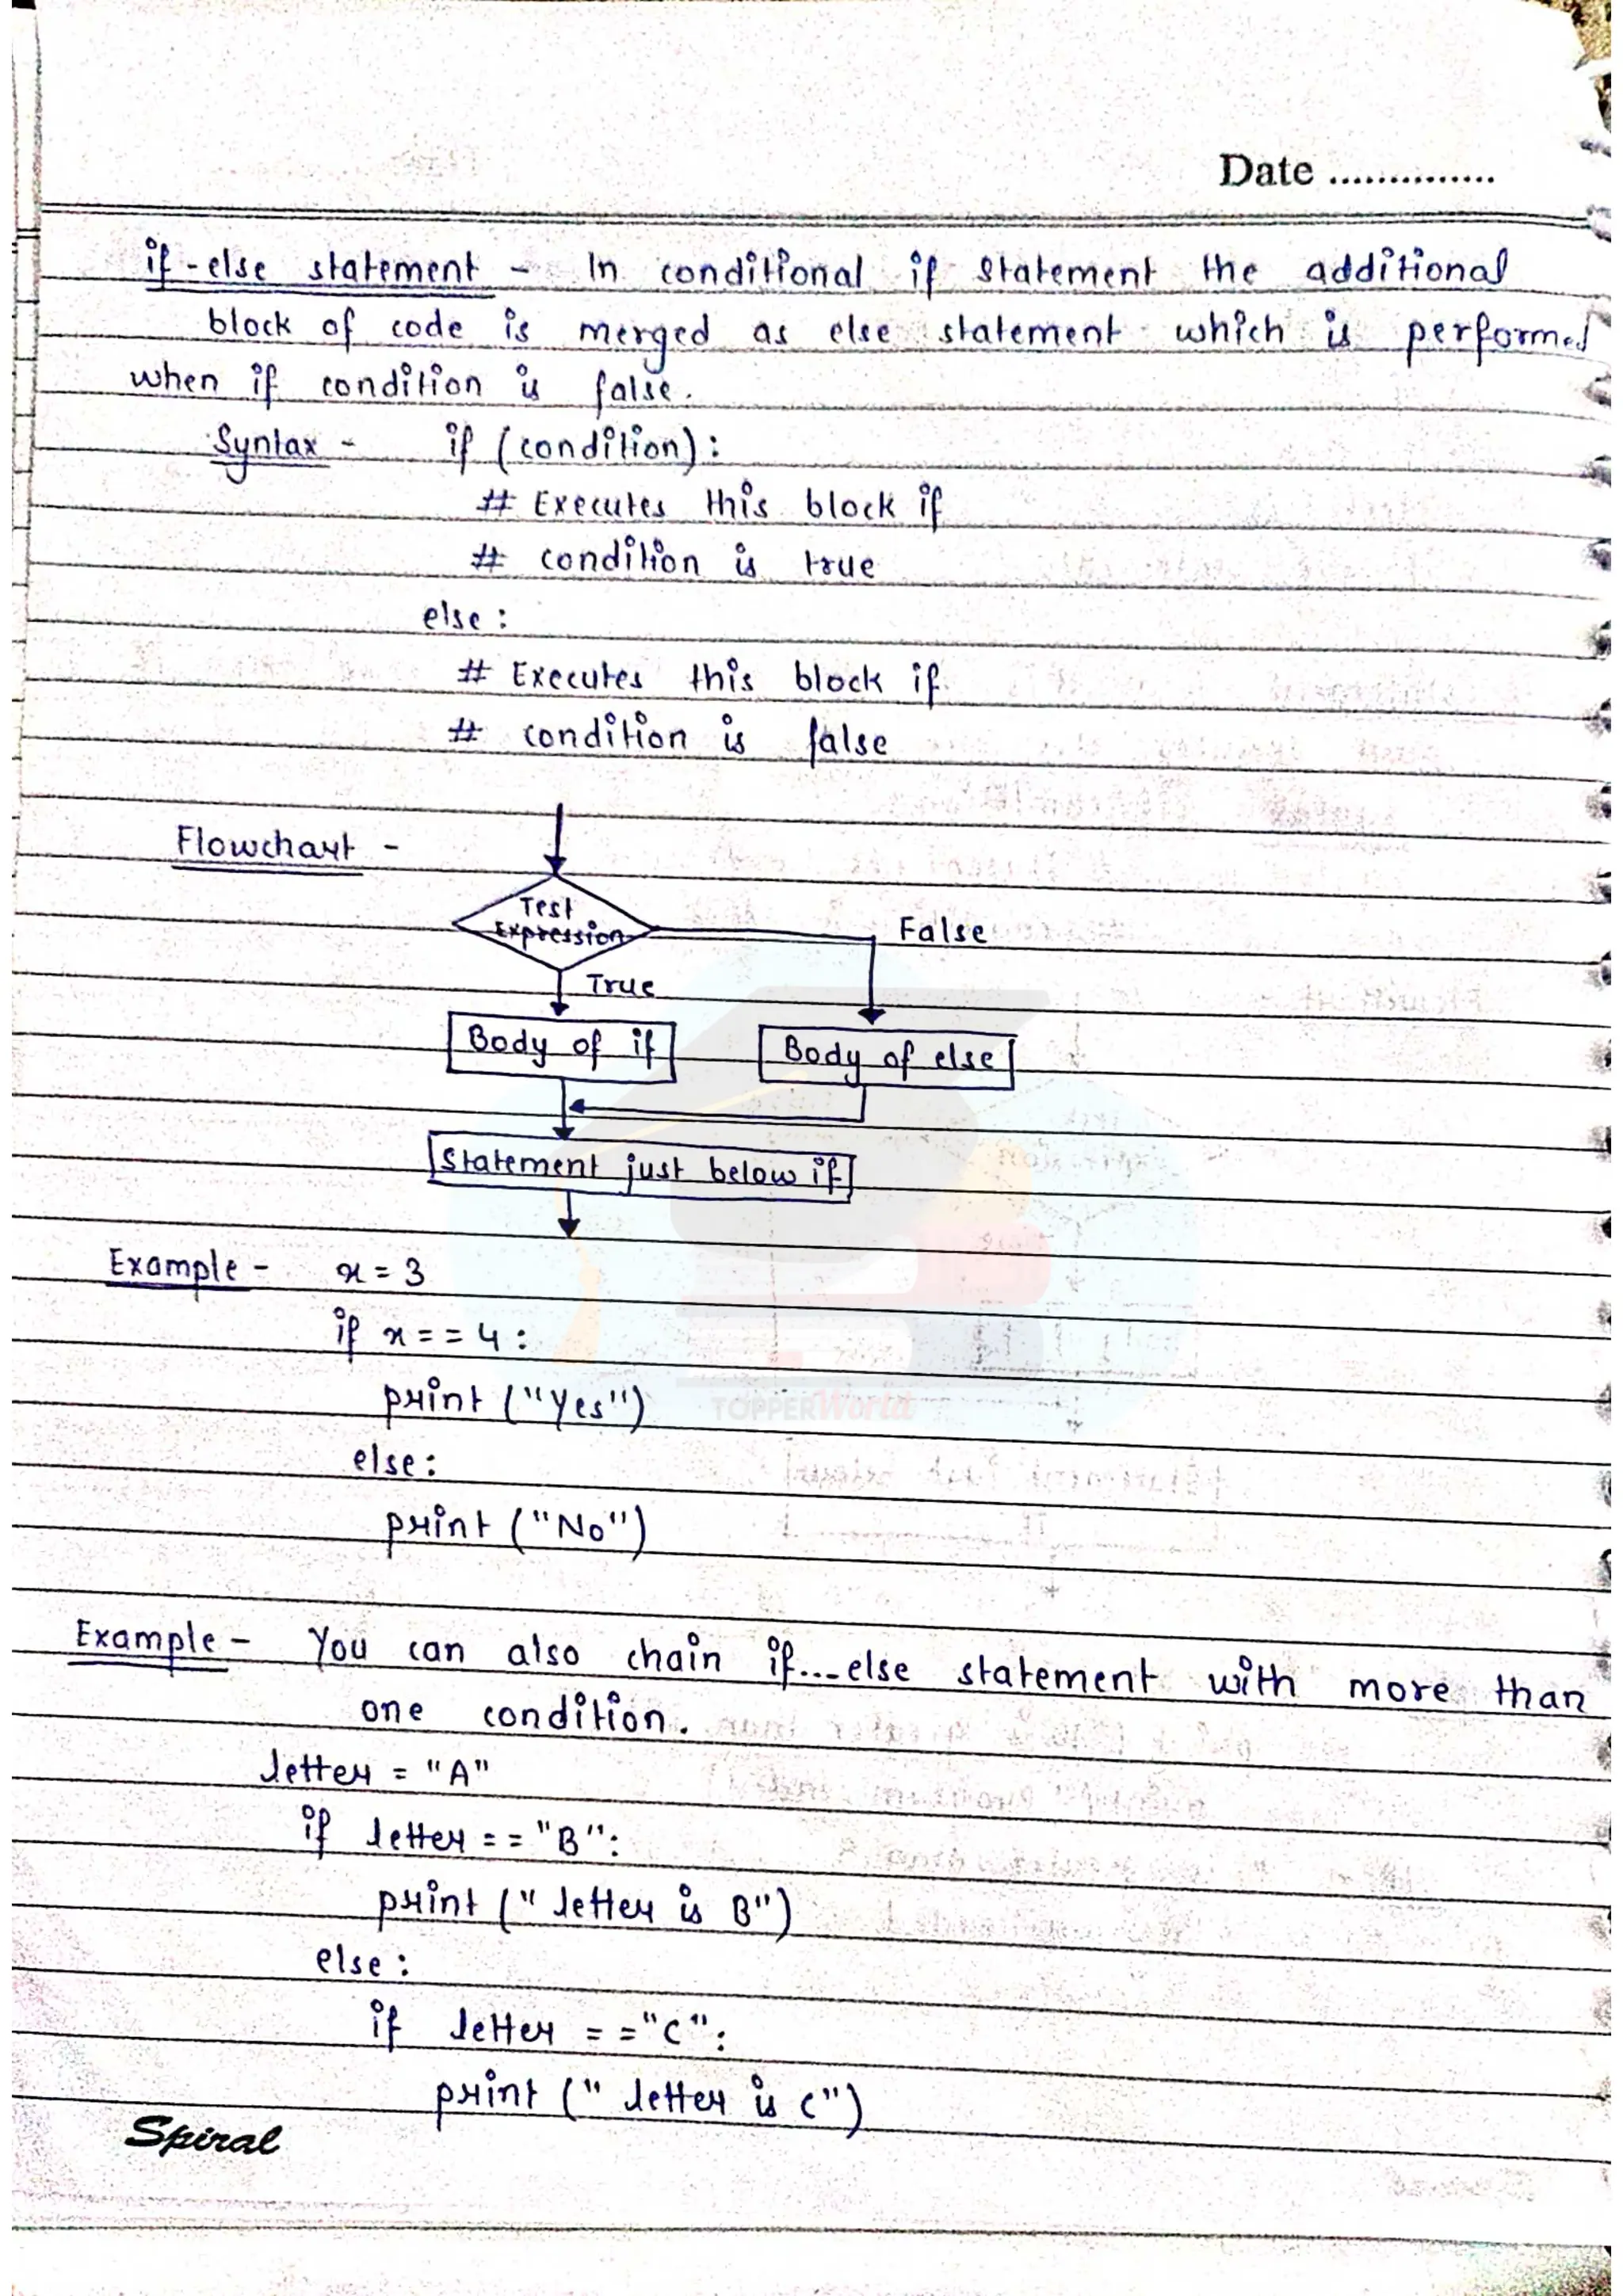 Date ..............
if-else statement - In conditional if statement the additional
block of code is merged as else statement which is performed
when if condition is false.
Syntax - if (condition):
# Executes this block if
# condition is true
else :
# Executes this block if
# condition is false
Flowchart -
Test
Expression
False
True
Body of if
Body of else
Statement just below if
Example - x = 3
if x == 4 :
print ("Yes")
TOPPERWorld
else:
print ("No")
Example - You can also chain if...else statement with more than
one condition.
letter = "A"
if letter == "B":
print (" letter is B")
else :
if letter == "C":
print (" letter is C")
Spiral